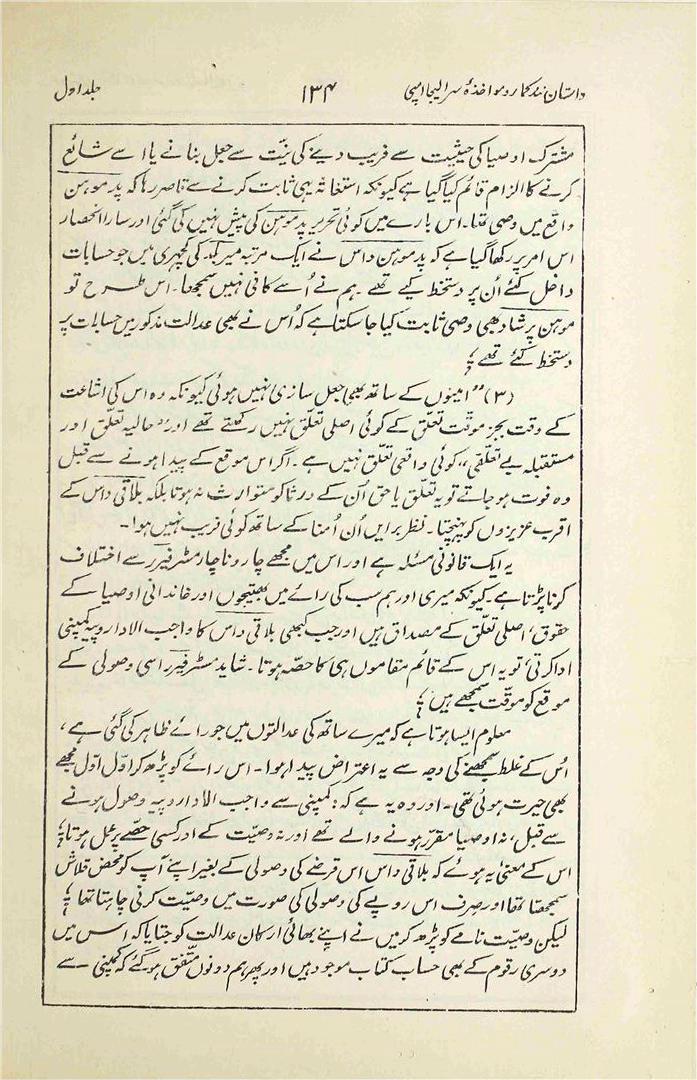 داستان نند کمار و مواخذهٔ سر الیجا امپی ۱۳۴ جلد اول
مشترک اوصیا کی حیثیت سے فریب دینے کی نیّت سے جعل بنانے یا اسے شائع
کرنے کا الزام قائم کیا گیا ہے کیونکہ استغاثہ یہی ثابت کرنے سے قاصر رہا کہ پدموہن
واقع میں وصی تھا۔ اس بارے میں کوئی تحریر پدموہن کی پیش نہیں کی گئی اور سارا انحصار
اس امر پر رکھا گیا ہے کہ پدموہن داس نے ایک مرتبہ میر بحر کی کچہری میں جو حسابات
داخل کئے اُن پر دستخط کیے تھے ۔ ہم نے اُسے کافی نہیں سمجھا ۔ اس طرح تو
موہن پرشاد بھی وصی ثابت کیا جا سکتا ہے کہ اُس نے بھی عدالت مذکور میں حسابات پر
دستخط کئے تھے ؛
(۳) ”امینوں کے ساتھ بھی جعل سازی نہیں ہوئی کیونکہ وہ اس کی اشاعت
کے وقت بجز موقّت تعلّق کے کوئی اصلی تعلّق نہیں رکھتے تھے اور ”حالیہ تعلّق اور
مستقبلہ بے تعلّقی“، کوئی واقعی تعلّق نہیں ہے ۔ اگر اس موقع کے پیدا ہونے سے قبل
وہ فوت ہو جاتے تو یہ تعلّق یا حق اُن کے ورثا کو متوارث نہ ہوتا بلکہ بلاقی داس کے
اقرب عزیزوں کو پہنچتا ۔ نظر برایں اُن اُمنا کے ساتھ کوئی فریب نہیں ہوا ۔
یہ ایک قانونی مسئلہ ہے اور اس میں مجھے چار و ناچار مسٹر فیرر سے اختلاف
کرنا پڑتا ہے ۔ کیونکہ میری اور ہم سب کی رائے میں بھتیجوں اور خاندانی اوصیا کے
حقوق، اصلی تعلّق کے مصداق ہیں اور جب کبھی بلاقی داس کا واجب الادا روپیہ کمپنی
ادا کرتی، تو یہ اس کے قائم مقاموں ہی کا حصّہ ہوتا ۔ شاید مسٹر فیرر اسی وصولی کے
موقع کو موقّت سمجھے ہیں ؛
معلوم ایسا ہوتا ہے کہ میرے ساتھ کی عدالتوں میں جو رائے ظاہر کی گئی ہے ،
اُس کے غلط سمجھنے کی وجہ سے یہ اعتراض پیدا ہوا ۔ اس رائے کو پڑھ کر اوّل اوّل مجھے
بھی حیرت ہوئی تھی ۔ اور وہ یہ ہے کہ : کمپنی سے واجب الادا روپیہ وصول ہونے
سے قبل ، نہ اوصیا مقرّر ہونے والے تھے اور نہ وصیّت کے اور کسی حصّے پر عمل ہوتا ؛
اس کے معنیٰ یہ ہوئے کہ بلاقی داس اس قرضے کی وصولی کے بغیر اپنے آپ کو محض قلاش
سمجھتا تھا اور صرف اس روپے کی وصولی کی صورت میں وصیّت کرنی چاہتا تھا ؛
لیکن وصیّت نامے کو پڑھ کر میں نے اپنے بھائی ارکان عدالت کو جتایا کہ اس میں
دوسری رقوم کے بھی حساب کتاب موجود ہیں اور پھر ہم دونوں متّفق ہو گئے کہ کمپنی سے